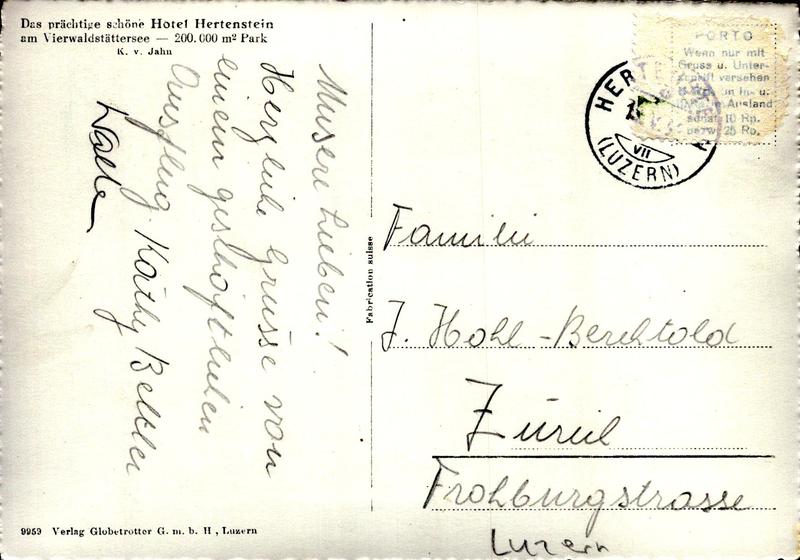 Das prächtige schöne Hotel Hertenstein
am Vierwaldstättersee — 200.000 m² Park
K. v. Jahn
Unsere Lieben!
Herzliche Grüsse von
einem geschäftlichen
Ausflug Käthy Bettler
Walter
Fabrication suisse
PORTO
Wenn nur mit
Gruss u. Unter-
schrift versehen
5 Rp. in In- u.
10 Rp. im Ausland
sonst 10 Rp.
bezw. 25 Rp.
HERTE
VII
(LUZERN)
Familie
J. Hohl-Berchtold
Zürich
Frohburgstrasse
Luzern
9959 Verlag Globetrotter G. m. b. H., Luzern